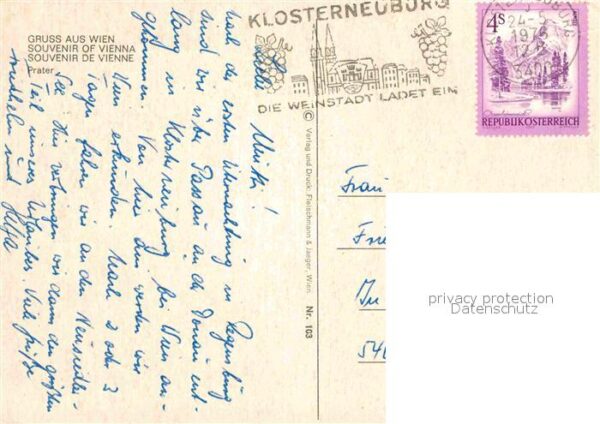 GRUSS AUS WIEN
SOUVENIR OF VIENNA
SOUVENIR DE VIENNE
Prater
KLOSTERNEUBURG
DIE WEINSTADT LADET EIN
24-5
1976
3400
4S
REPUBLIK ÖSTERREICH
Liebe
Nach der ersten Übernachtung in Regensburg
sind wir über Passau an der Donau ent-
lang in Klosterneuburg bei Wien an-
gekommen. Von hier aus werden wir
Wien erkunden. Nach 2 oder 3
Tagen fahren wir an den Neusiedler-
See. Hier verbringen wir dann den größten
Teil unseres Urlaubes. Viele Grüße
und
© Verlag und Druck: Fleischmann & Jaeger, Wien
Nr. 103
Frau
In
privacy protection
Datenschutz